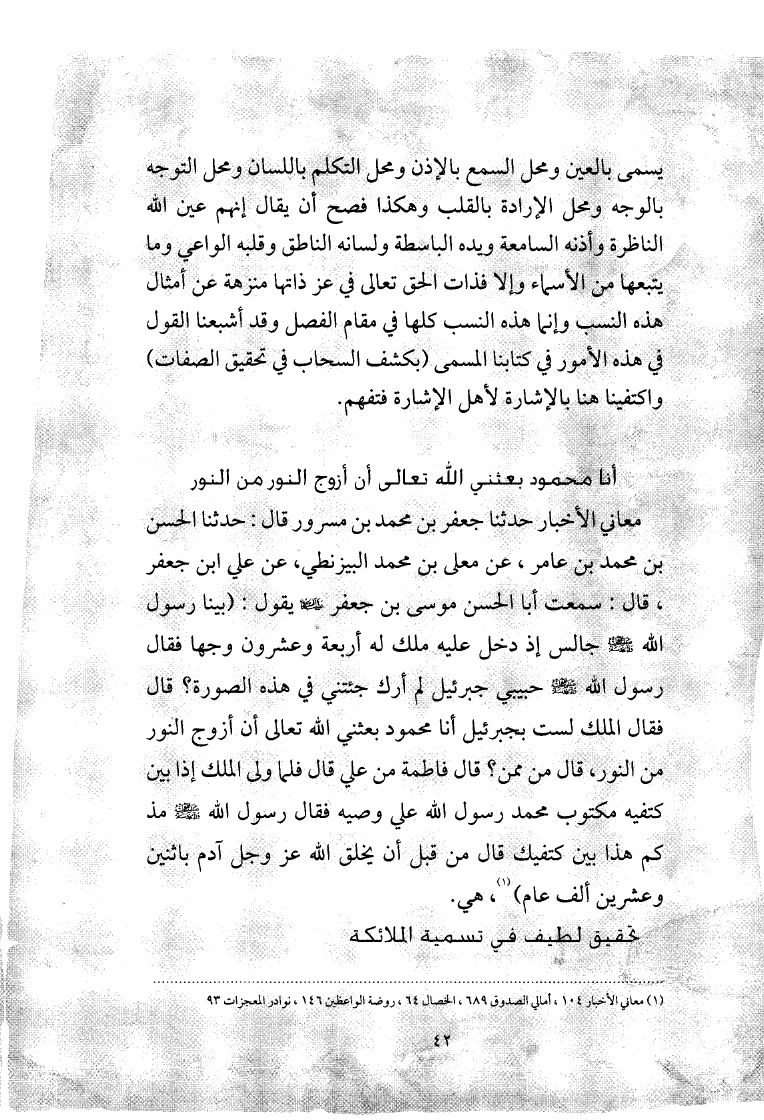 يسمى بالعين ومحل السمع بالإذن ومحل التكلم باللسان ومحل التوجه
بالوجه ومحل الإرادة بالقلب وهكذا فصح أن يقال إنهم عين الله
الناظرة وأذنه السامعة ويده الباسطة ولسانه الناطق وقلبه الواعي وما
يتبعها من الأسماء وإلا فذات الحق تعالى في عز ذاتها منزهة عن أمثال
هذه النسب وإنما هذه النسب كلها في مقام الفصل وقد أشبعنا القول
في هذه الأمور في كتابنا المسمى (بكشف السحاب في تحقيق الصفات)
واكتفينا هنا بالإشارة لأهل الإشارة فتفهم.
أنا محمود بعثني الله تعالى أن أزوج النور من النور
معاني الأخبار حدثنا جعفر بن محمد بن مسرور قال : حدثنا الحسن
بن محمد بن عامر ، عن معلى بن محمد البيزنطي، عن علي ابن جعفر
، قال : سمعت أبا الحسن موسى بن جعفر يقول : (بينا رسول
الله ﷺ جالس إذ دخل عليه ملك له أربعة وعشرون وجها فقال
رسول الله ﷺ حبيبي جبرئيل لم أرك جئتني في هذه الصورة؟ قال
فقال الملك لست بجبرئيل أنا محمود بعثني الله تعالى أن أزوج النور
من النور، قال من ممن؟ قال فاطمة من علي قال فلما ولى الملك إذا بين
كتفيه مكتوب محمد رسول الله علي وصيه فقال رسول الله ﷺ مذ
كم هذا بين كتفيك قال من قبل أن يخلق الله عز وجل آدم باثنين
وعشرين ألف عام)(١)، هي.
تحقيق لطيف في تسمية الملائكة
(١) معاني الأخبار ١٠٤ ، أمالي الصدوق ٦٨٩ ، الخصال ٦٤ ، روضة الواعظين ١٤٦ ، نوادر المعجزات ٩٣
٤٢